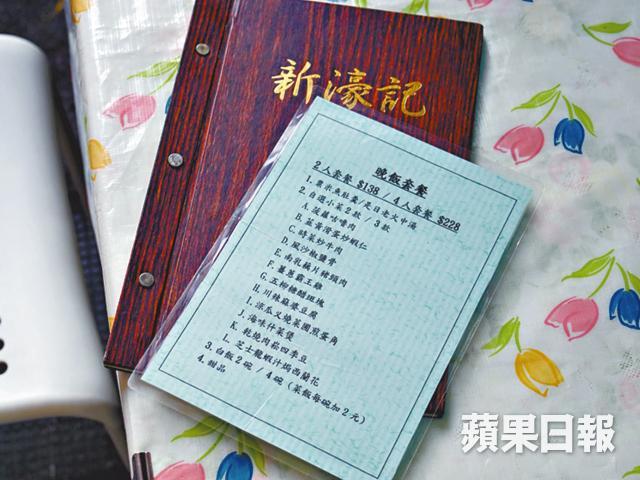 新濠記
晚飯套餐
2人套餐 $138 / 4人套餐 $228
1. 粟米魚肚羹/是日老火中湯
2. 自選小菜2款 / 3款
A. 菠蘿咕嚕肉
B. 韮黃滑蛋炒蝦仁
C. 時菜炒牛肉
D. 風沙椒鹽骨
E. 南乳藕片豬頸肉
F. 薑蔥霸王雞
G. 五柳糖醋斑塊
H. 川辣麻婆豆腐
I. 涼瓜叉燒菜圃煎蛋角
J. 海味什菜煲
K. 乾燒肉崧四季豆
L. 芝士龍蝦汁焗西蘭花
3. 白飯2碗 / 4碗 (菜飯每碗加2元)
4. 甜品
蘋果日報